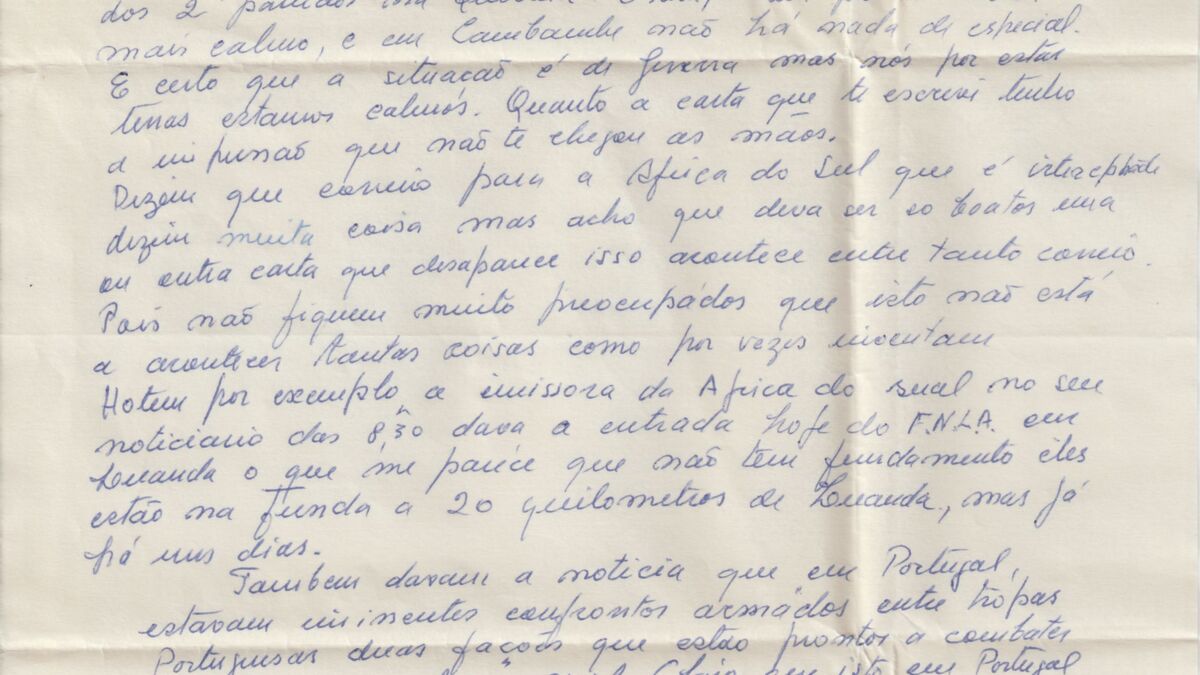 dos 2 partidos
mais calmo, e em Cambambe não há nada de especial.
E certo que a situação é de Guerra mas nós por estas
terras estamos calmos. Quanto a carta que te escrevi tenho
a impressão que não te chegou as mãos.
Dizem que correio para a Africa do Sul que é
dizem muita coisa mas acho que deva ser so boatos uma
ou outra carta que desaparece isso acontece entre tanto correio.
Pais não fiquem muito preocupádos que isto não está
a acontecer tantas coisas como por vezes inventam
Hotem por exemplo a emissora da Africa do sual no seu
noticiario das 8,30 dava a entrada hoje do F.N.L.A. em
Luanda o que me parece que não tem fundamento eles
estão na Funda a 20 quilometros de Luanda, mas já
há uns dias.
Tambem davam a noticia que em Portugal,
estavam iminentes confrontos armádos entre trópas
Portuguesas duas fações que estão prontos a combater
que isto em Portugal